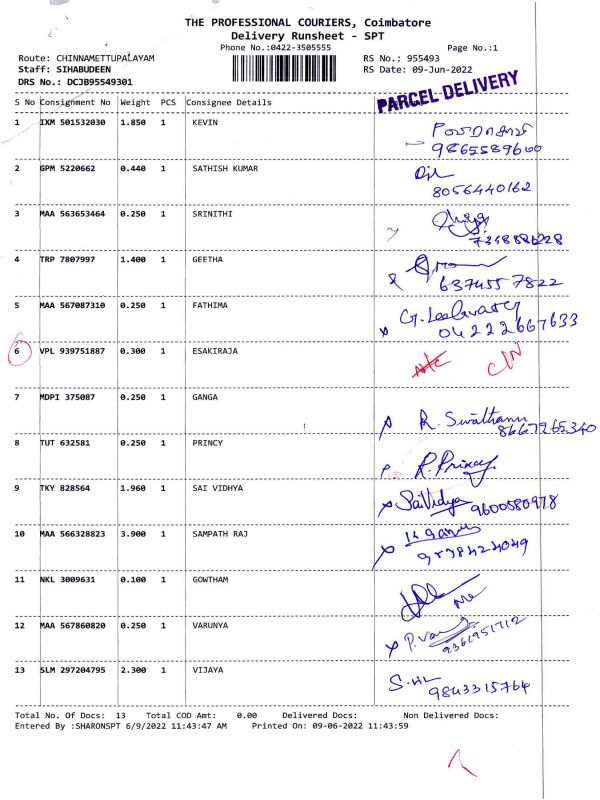 THE PROFESSIONAL COURIERS, Coimbatore
Delivery Runsheet - SPT
Phone No.:0422-3505555 Page No.:1
Route: CHINNAMETTUPALAYAM RS No.: 955493
Staff: SIHABUDEEN RS Date: 09-Jun-2022
DRS No.: DCJB95549301
PARCEL DELIVERY
S No Consignment No Weight PCS Consignee Details
1 IXM 501532030 1.850 1 KEVIN
9865589600
2 GPM 5220662 0.440 1 SATHISH KUMAR
8056440162
3 MAA 563653464 0.250 1 SRINITHI
4 TRP 7807997 1.400 1 GEETHA
6374557822
5 MAA 567087310 0.250 1 FATHIMA
04222667633
6 VPL 939751887 0.300 1 ESAKIRAJA
7 MDPI 375087 0.250 1 GANGA
R. Swathamu
8667265340
8 TUT 632581 0.250 1 PRINCY
R. Princy
9 TKY 828564 1.960 1 SAI VIDHYA
Sai Vidya 9600580978
10 MAA 566328823 3.900 1 SAMPATH RAJ
11 NKL 3009631 0.100 1 GOWTHAM
12 MAA 567860820 0.250 1 VARUNYA
9361951712
13 SLM 297204795 2.300 1 VIJAYA
9843315764
Total No. Of Docs: 13 Total COD Amt: 0.00 Delivered Docs: Non Delivered Docs:
Entered By :SHARONSPT 6/9/2022 11:43:47 AM Printed On: 09-06-2022 11:43:59